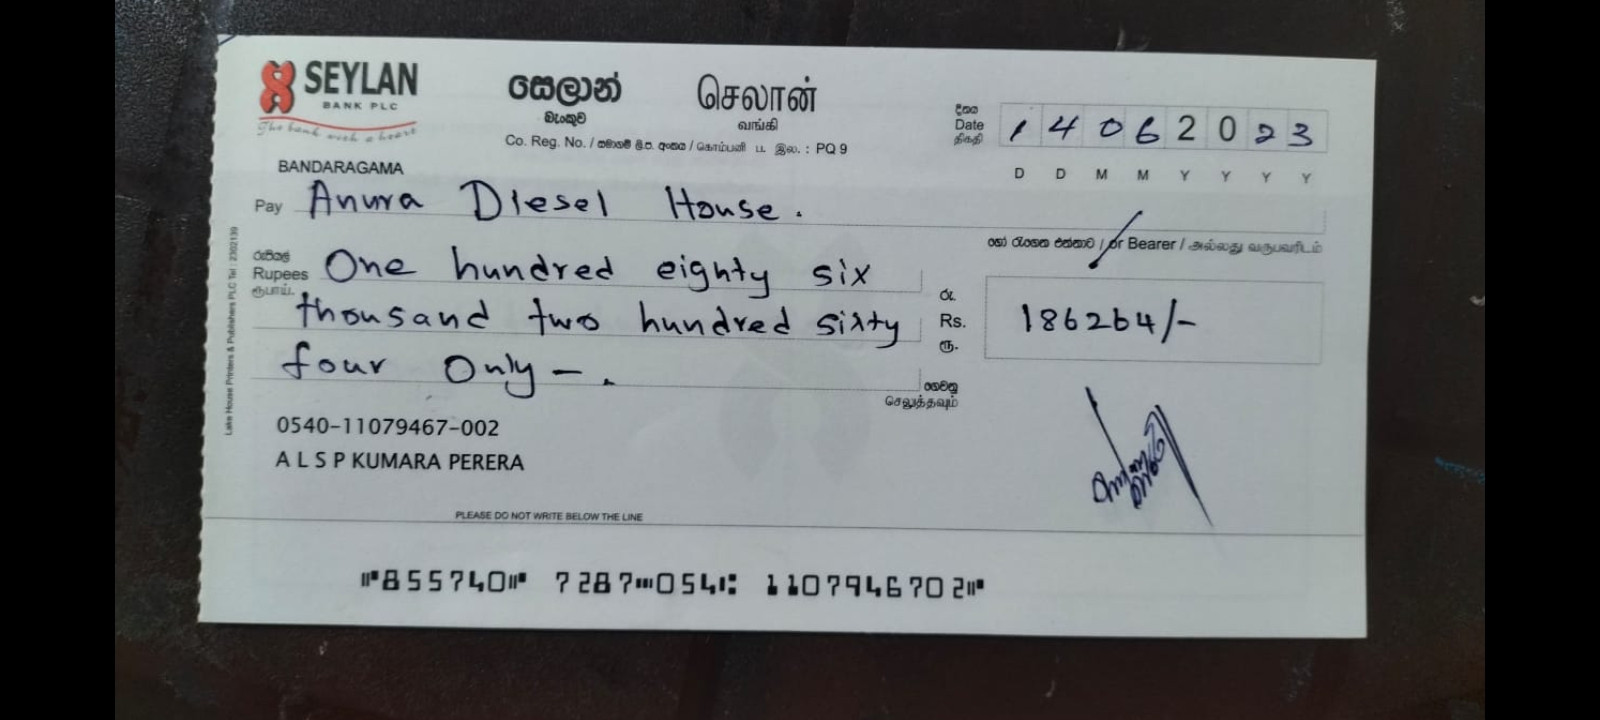 SEYLAN
BANK PLC
The bank with a heart
සෙලාන් செலான்
බැංකුව வங்கி
Co. Reg. No. / සමාගම් ලි.ප. අංකය / கொம்பனி ப. இல. : PQ 9
BANDARAGAMA
දිනය
Date 14062023
திகதி
D D M M Y Y Y Y
Pay Anura Diesel House.
හෝ රැගෙන එන්නාට / or Bearer / அல்லது வருபவரிடம்
රුපියල්
Rupees One hundred eighty six
ரூபாய்.
thousand two hundred sixty
four Only —.
රු.
Rs. 186264/-
ரூ.
ගෙවනු
செலுத்தவும்
0540-11079467-002
A L S P KUMARA PERERA
PLEASE DO NOT WRITE BELOW THE LINE
⑈855740⑈ 7287⑉054⑆ 110794670 2⑈
Lake House Printers & Publishers PLC Tel : 2302139